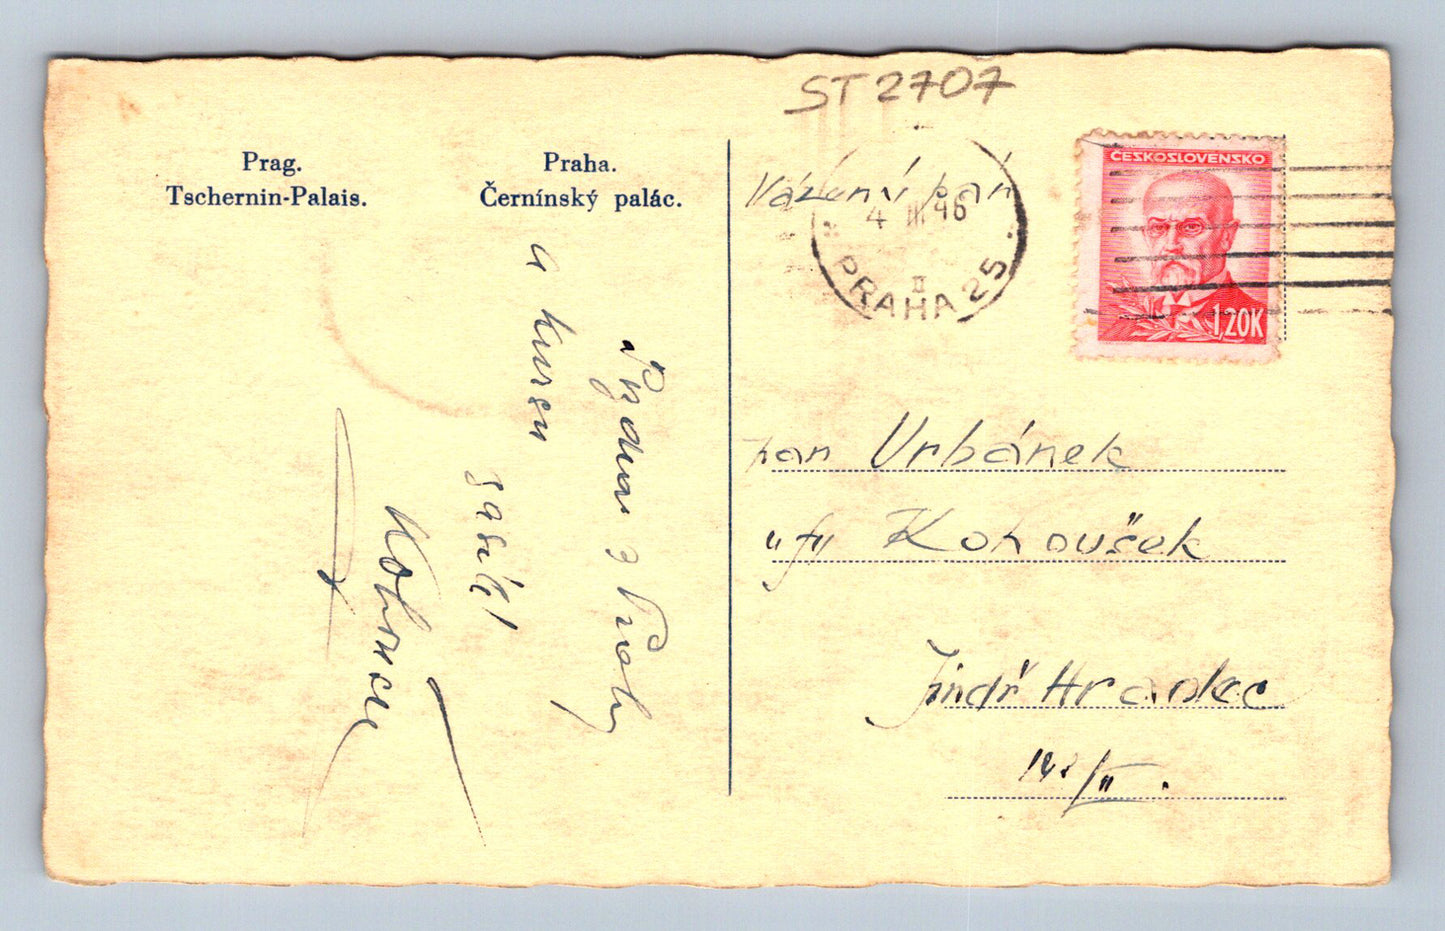 ST 2707
Prag.
Tschernin-Palais.
Praha.
Černínský palác.
ČESKOSLOVENSKO
1,20K
4 III 46
II
PRAHA 25
Vážený pan
pan Urbánek
"fy" Kohoušek
Jindř Hradec
/II.
z Prahy
a kursu
zasílá